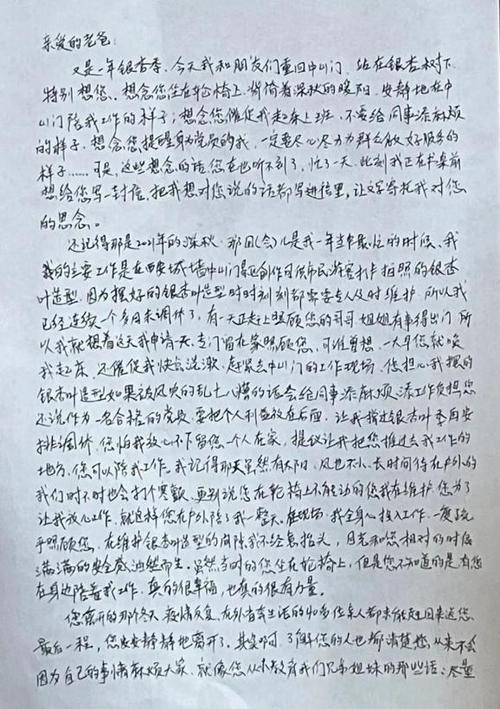 亲爱的老爸:
又是一年银杏季,今天我和朋友们重回中山门,站在银杏树下,
特别想您。想念您坐在轮椅上,背倚着深秋的暖阳,安静地在中
山门陪我工作的样子;想念您催促我起床上班,不要给同事添麻烦
的样子,想念您提醒身为党员的我,一定要尽心尽力为群众做好服务的
样子……可是,这些想念的话,您在也听不到了,忙了一天,此刻我正在书桌前
想给您写一封信,把我想对您说的话都写进信里,让文字寄托我对您
的思念。
还记得那是2021年的深秋,那会儿是我一年当中最忙的时候,我
我的主要工作是在西安城墙中山门景区创作可供市民游客打卡拍照的银杏
叶造型,因为摆好的银杏叶造型时时刻刻都需要专人及时维护,所以我
已经连续一个多月未调休了,有一天正赶上照顾您的哥哥姐姐有事得出门,所
以我就想着这天我申请天,专门留在家照顾您,可谁曾想,一大早您就唤
我起床,还催促我快点洗漱,赶紧去中山门的工作现场,您担心我摆的
银杏叶造型如果被风吹的乱七八糟的话会给同事添麻烦,添工作负担,您
还说作为一名合格的党员,要把个人利益放在后面,让我错过银杏叶季再安
排调休,您怕我放心不下留您一个人在家,提议让我把您推过去我工作的
地方,您可以陪我工作。我记得那天虽然有太阳,风也不小,长时间待在户外的
我们时不时也会打个寒颤,更别说您在轮椅上不能动的您,我在维护,您为了
让我放心工作,就这样您在户外陪了我一整天,在现场,我全身心投入工作,
乎照顾您,在维护银杏叶造型的间隙,我不经意抬头,目光和您相对的时候,
满满的安全感油然而生。虽然当时的您坐在轮椅上,但是您不知道的是,有您
在身边陪着我工作,真的很幸福,也真的很有力量。
您离开的那个冬天,疫情反复,在外奔生活的40多位亲人都未能赶回来送您
最后一程,您安安静静地离开了。其实呀,了解您的人也都清楚您,从来不会
因为自己的事情麻烦大家,就像您从小教育我们兄弟姐妹的那些话:尽量